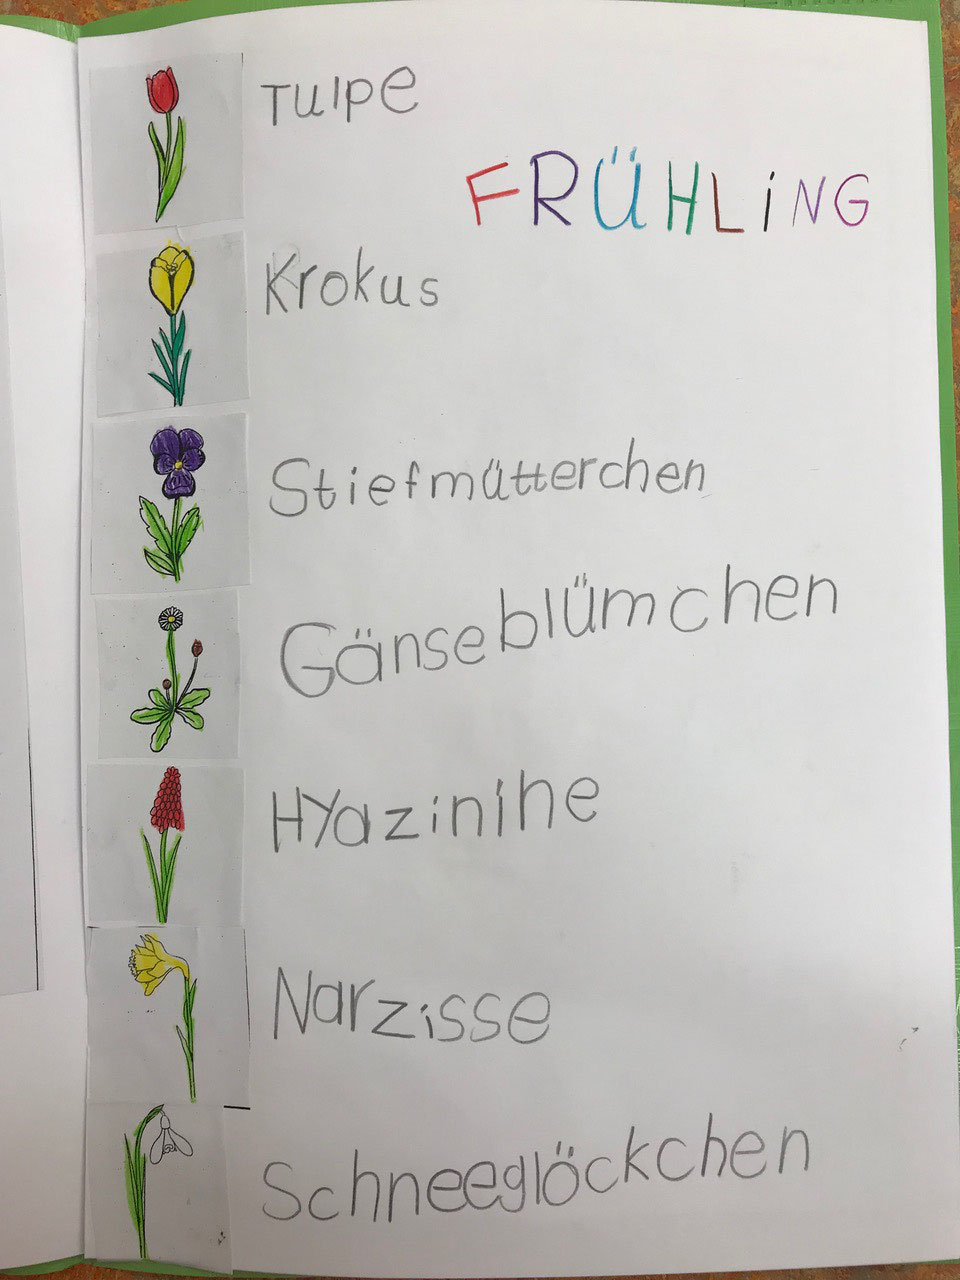 Tulpe
FRÜHLiNG
Krokus
Stiefmütterchen
Gänseblümchen
HYazinihe
Narzisse
Schneeglöckchen